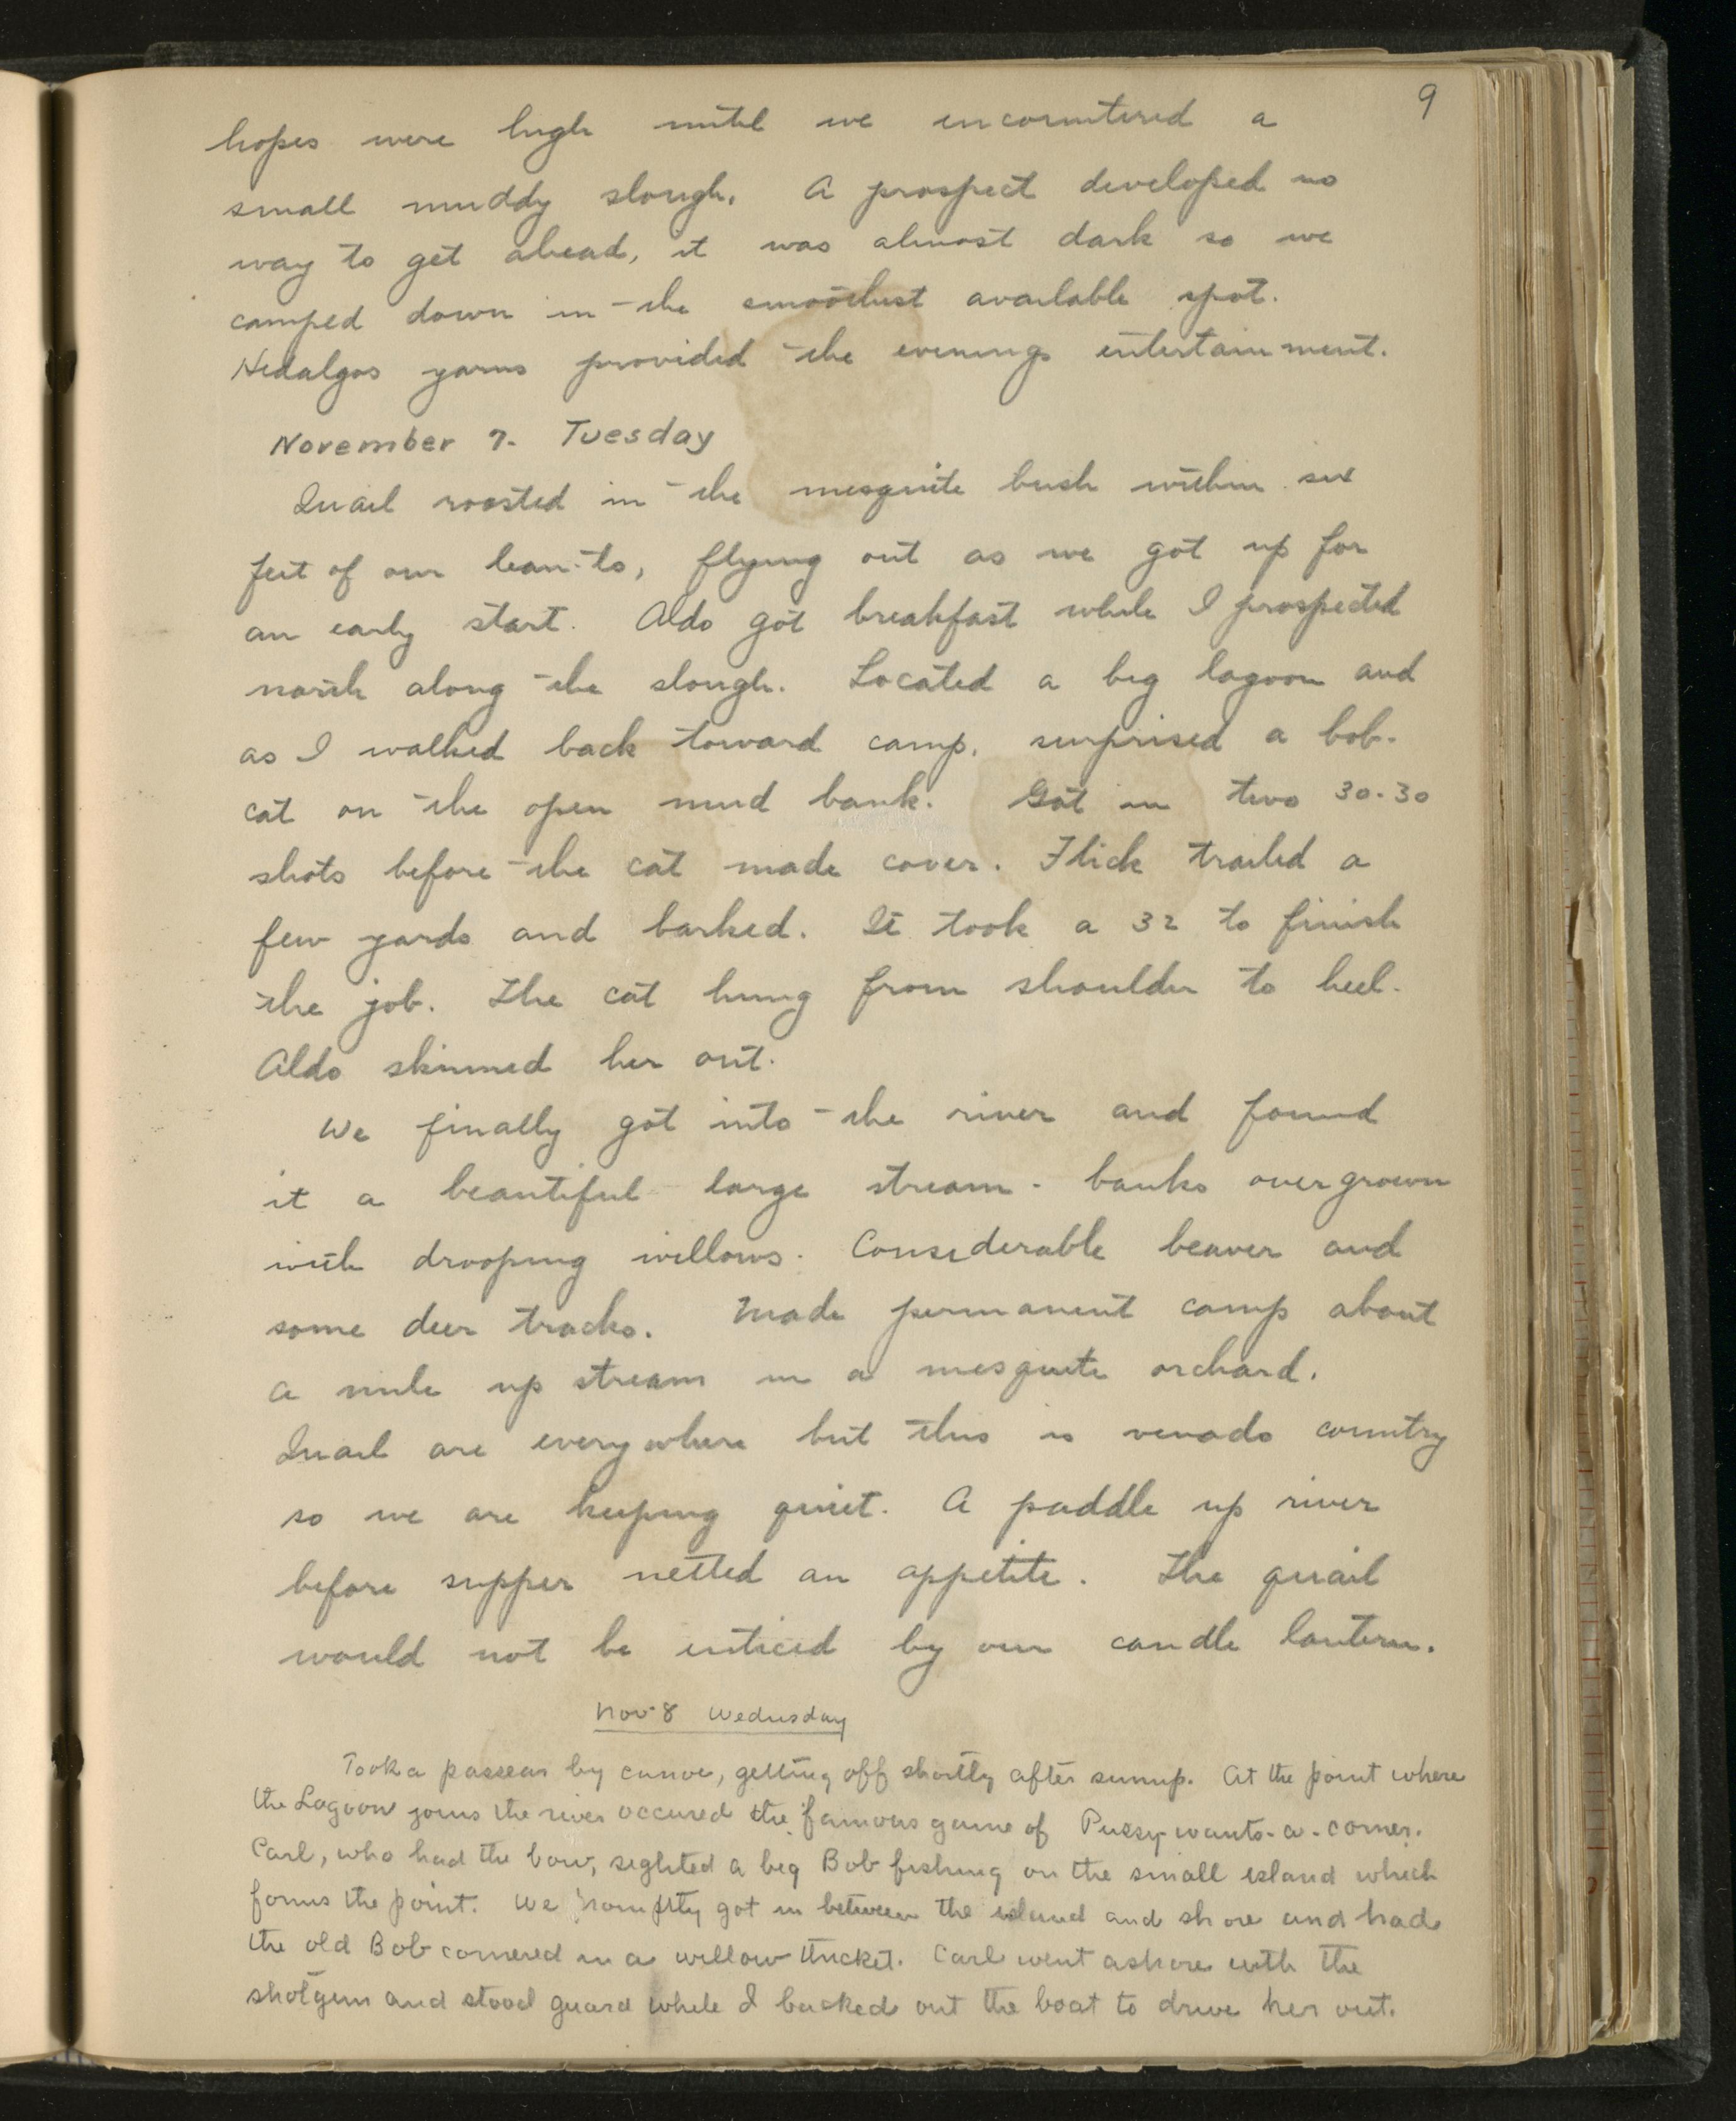 9
hopes were high until we encountered a
small muddy slough. A prospect developed no
way to get ahead, it was almost dark so we
camped down in the smoothest available spot.
Hidalgos yarns provided the evenings entertainment.
November 7. Tuesday
Quail roosted in the mesquite bush within six
feet of our lean-to, flying out as we got up for
an early start. Aldo got breakfast while I prospected
north along the slough. Located a big lagoon and
as I walked back toward camp, surprised a bob-
cat on the open mud bank. Got in two 30-30
shots before the cat made cover. Flick trailed a
few yards and barked. It took a 32 to finish
the job. The cat hung from shoulder to heel.
Aldo skinned her out.
We finally got into the river and found
it a beautiful large stream - banks overgrown
with drooping willows. Considerable beaver and
some deer tracks. Made permanent camp about
a mile up stream in a mesquite orchard.
Quail are everywhere but this is venado country
so we are keeping quiet. A paddle up river
before supper netted an appetite. The quail
would not be enticed by our candle lantern.
Nov 8 Wednesday
Took a passear by canoe, getting off shortly after sunup. At the point where
the Lagoon joins the river occured the famous game of Pussy-wants-a-corner.
Carl, who had the bow, sighted a big Bob fishing on the small island which
forms the point. We promptly got in between the island and shore and had
the old Bob cornered in a willow thicket. Carl went ashore with the
shotgun and stood guard while I backed out the boat to drive her out.